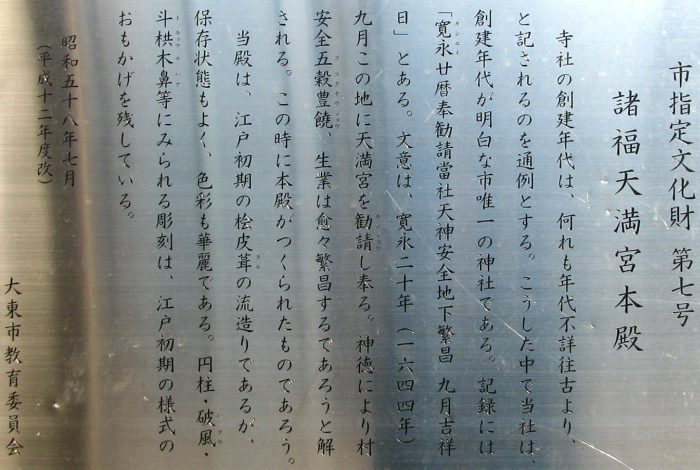 市指定文化財 第七号
諸福天満宮本殿
寺社の創建年代は、何れも年代不詳往古より、
と記されるのを通例とする。こうした中で当社は、
創建年代が明白な市唯一の神社である。記録には
「寛永廿暦奉勧請當社天神安全地下繁昌 九月吉祥
日」とある。文意は、寛永二十年(一六四四年)
九月この地に天満宮を勧請し奉る。神徳により村
安全五穀豊饒、生業は愈々繁昌するであろうと解
される。この時に本殿がつくられたものであろう。
当殿は、江戸初期の桧皮葺の流造りであるが、
保存状態もよく、色彩も華麗である。円柱・破風・
斗栱木鼻等にみられる彫刻は、江戸初期の様式の
おもかげを残している。
昭和五十八年七月
(平成十二年度改)
大東市教育委員会